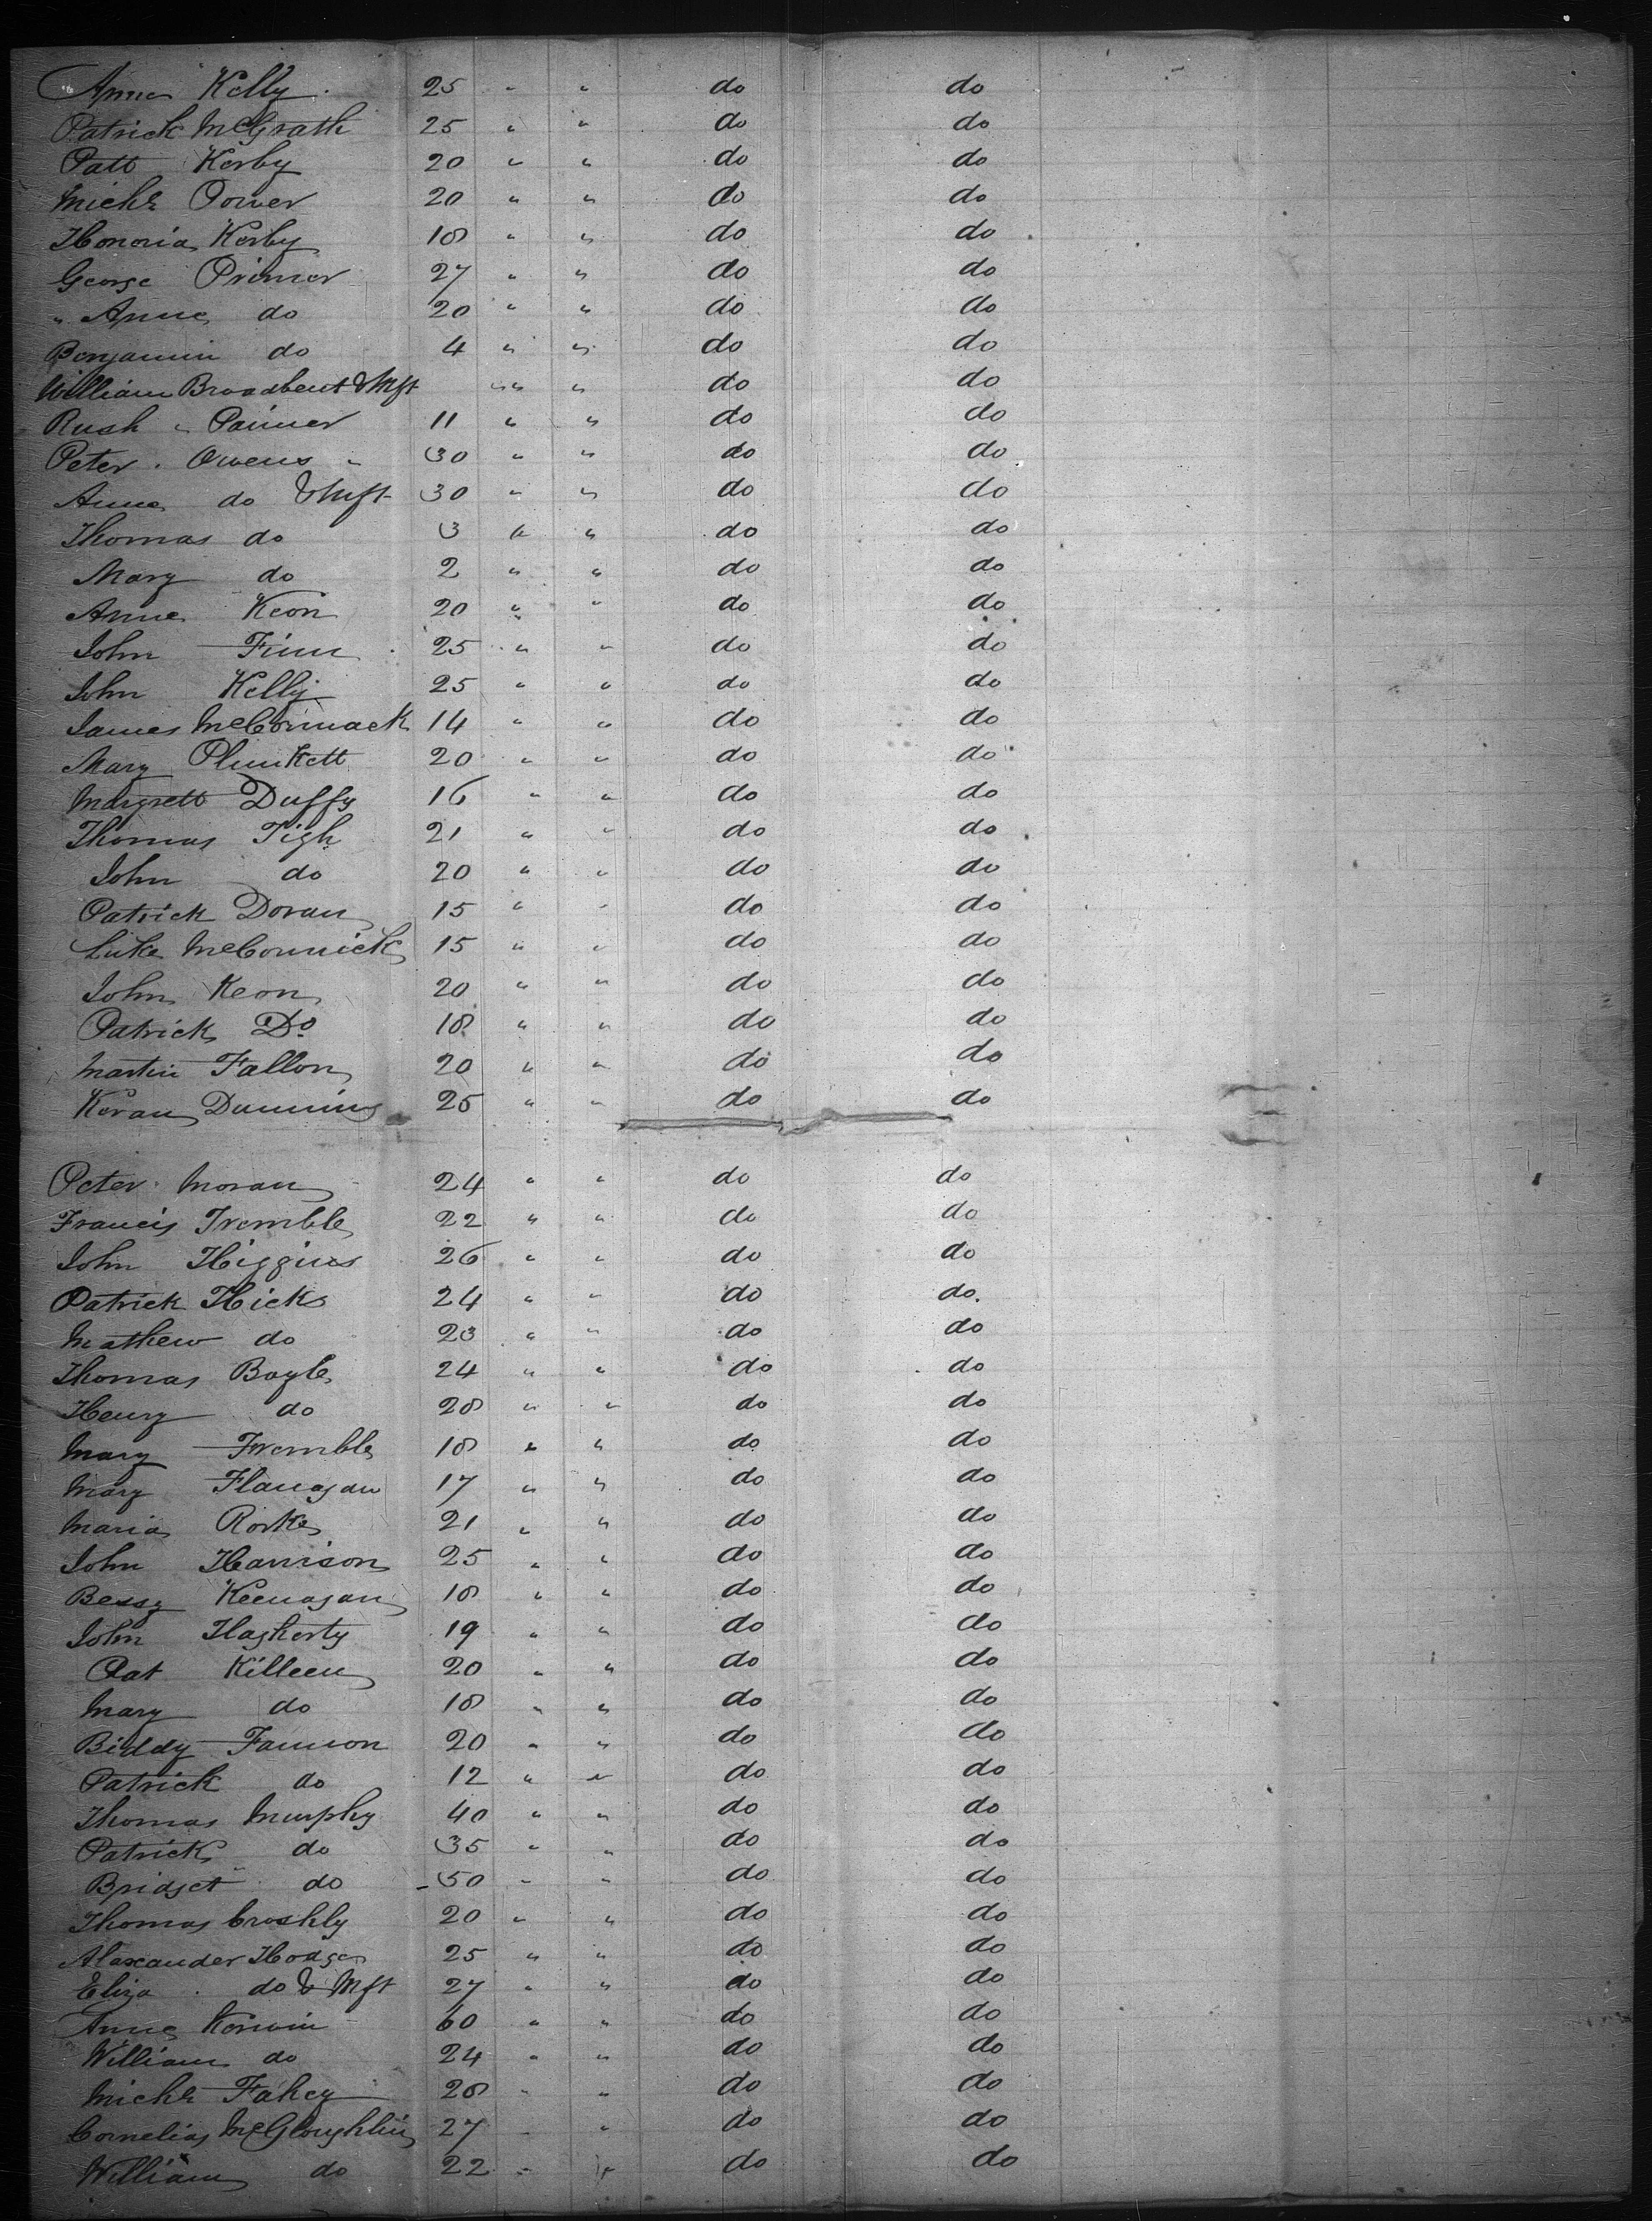 Anne Kelly 25 " " do do
Patrick McGrath 25 " " do do
Patt Kerby 20 " " do do
Michl Power 20 " " do do
Honoria Kerby 18 " " do do
George Primer 27 " " do do
" Anne do 20 " " do do
Benjamin do 4 " " do do
William Broadbent & Inft " " " do do
Rush " Painer 11 " " do do
Peter . Owens " 30 " " do do
Anne do & Inft 30 " " do do
Thomas do 3 " " do do
Mary do 2 " " do do
Anne Keon 20 " " do do
John Finn 25 " " do do
John Kelly 25 " " do do
James McCormack 14 " " do do
Mary Plunkett 20 " " do do
Margrett Duffy 16 " " do do
Thomas Tigh 21 " " do do
John do 20 " " do do
Patrick Doran 15 " " do do
Luke McCormick 15 " " do do
John Keon 20 " " do do
Patrick Do 18 " " do do
Martin Fallon 20 " " do do
Keran Dunning 25 " " do do
Peter Moran 24 " " do do
Francis Tremble 22 " " do do
John Higgins 26 " " do do
Patrick Hicks 24 " " do do.
Mathew do 23 " " do do
Thomas Boyle 24 " " do do
Henry do 28 " " do do
Mary Tremble 18 " " do do
Mary Flanagan 17 " " do do
Maria Rorke 21 " " do do
John Harrison 25 " " do do
Bessy Keenagan 18 " " do do
John Hagherty 19 " " do do
Pat Killeen 20 " " do do
Mary do 18 " " do do
Biddy Fannon 20 " " do do
Patrick do 12 " " do do
Thomas Murphy 40 " " do do
Patrick do 35 " " do do
Bridget do 50 " " do do
Thomas Croshly 20 " " do do
Alexander Hodges 25 " " do do
Eliza . do & Inft 27 " " do do
Anne Kerwin 60 " " do do
William do 24 " " do do
Michl Fahey 28 " " do do
Cornelias McGloughlin 27 " " do do
William do 22 " " do do